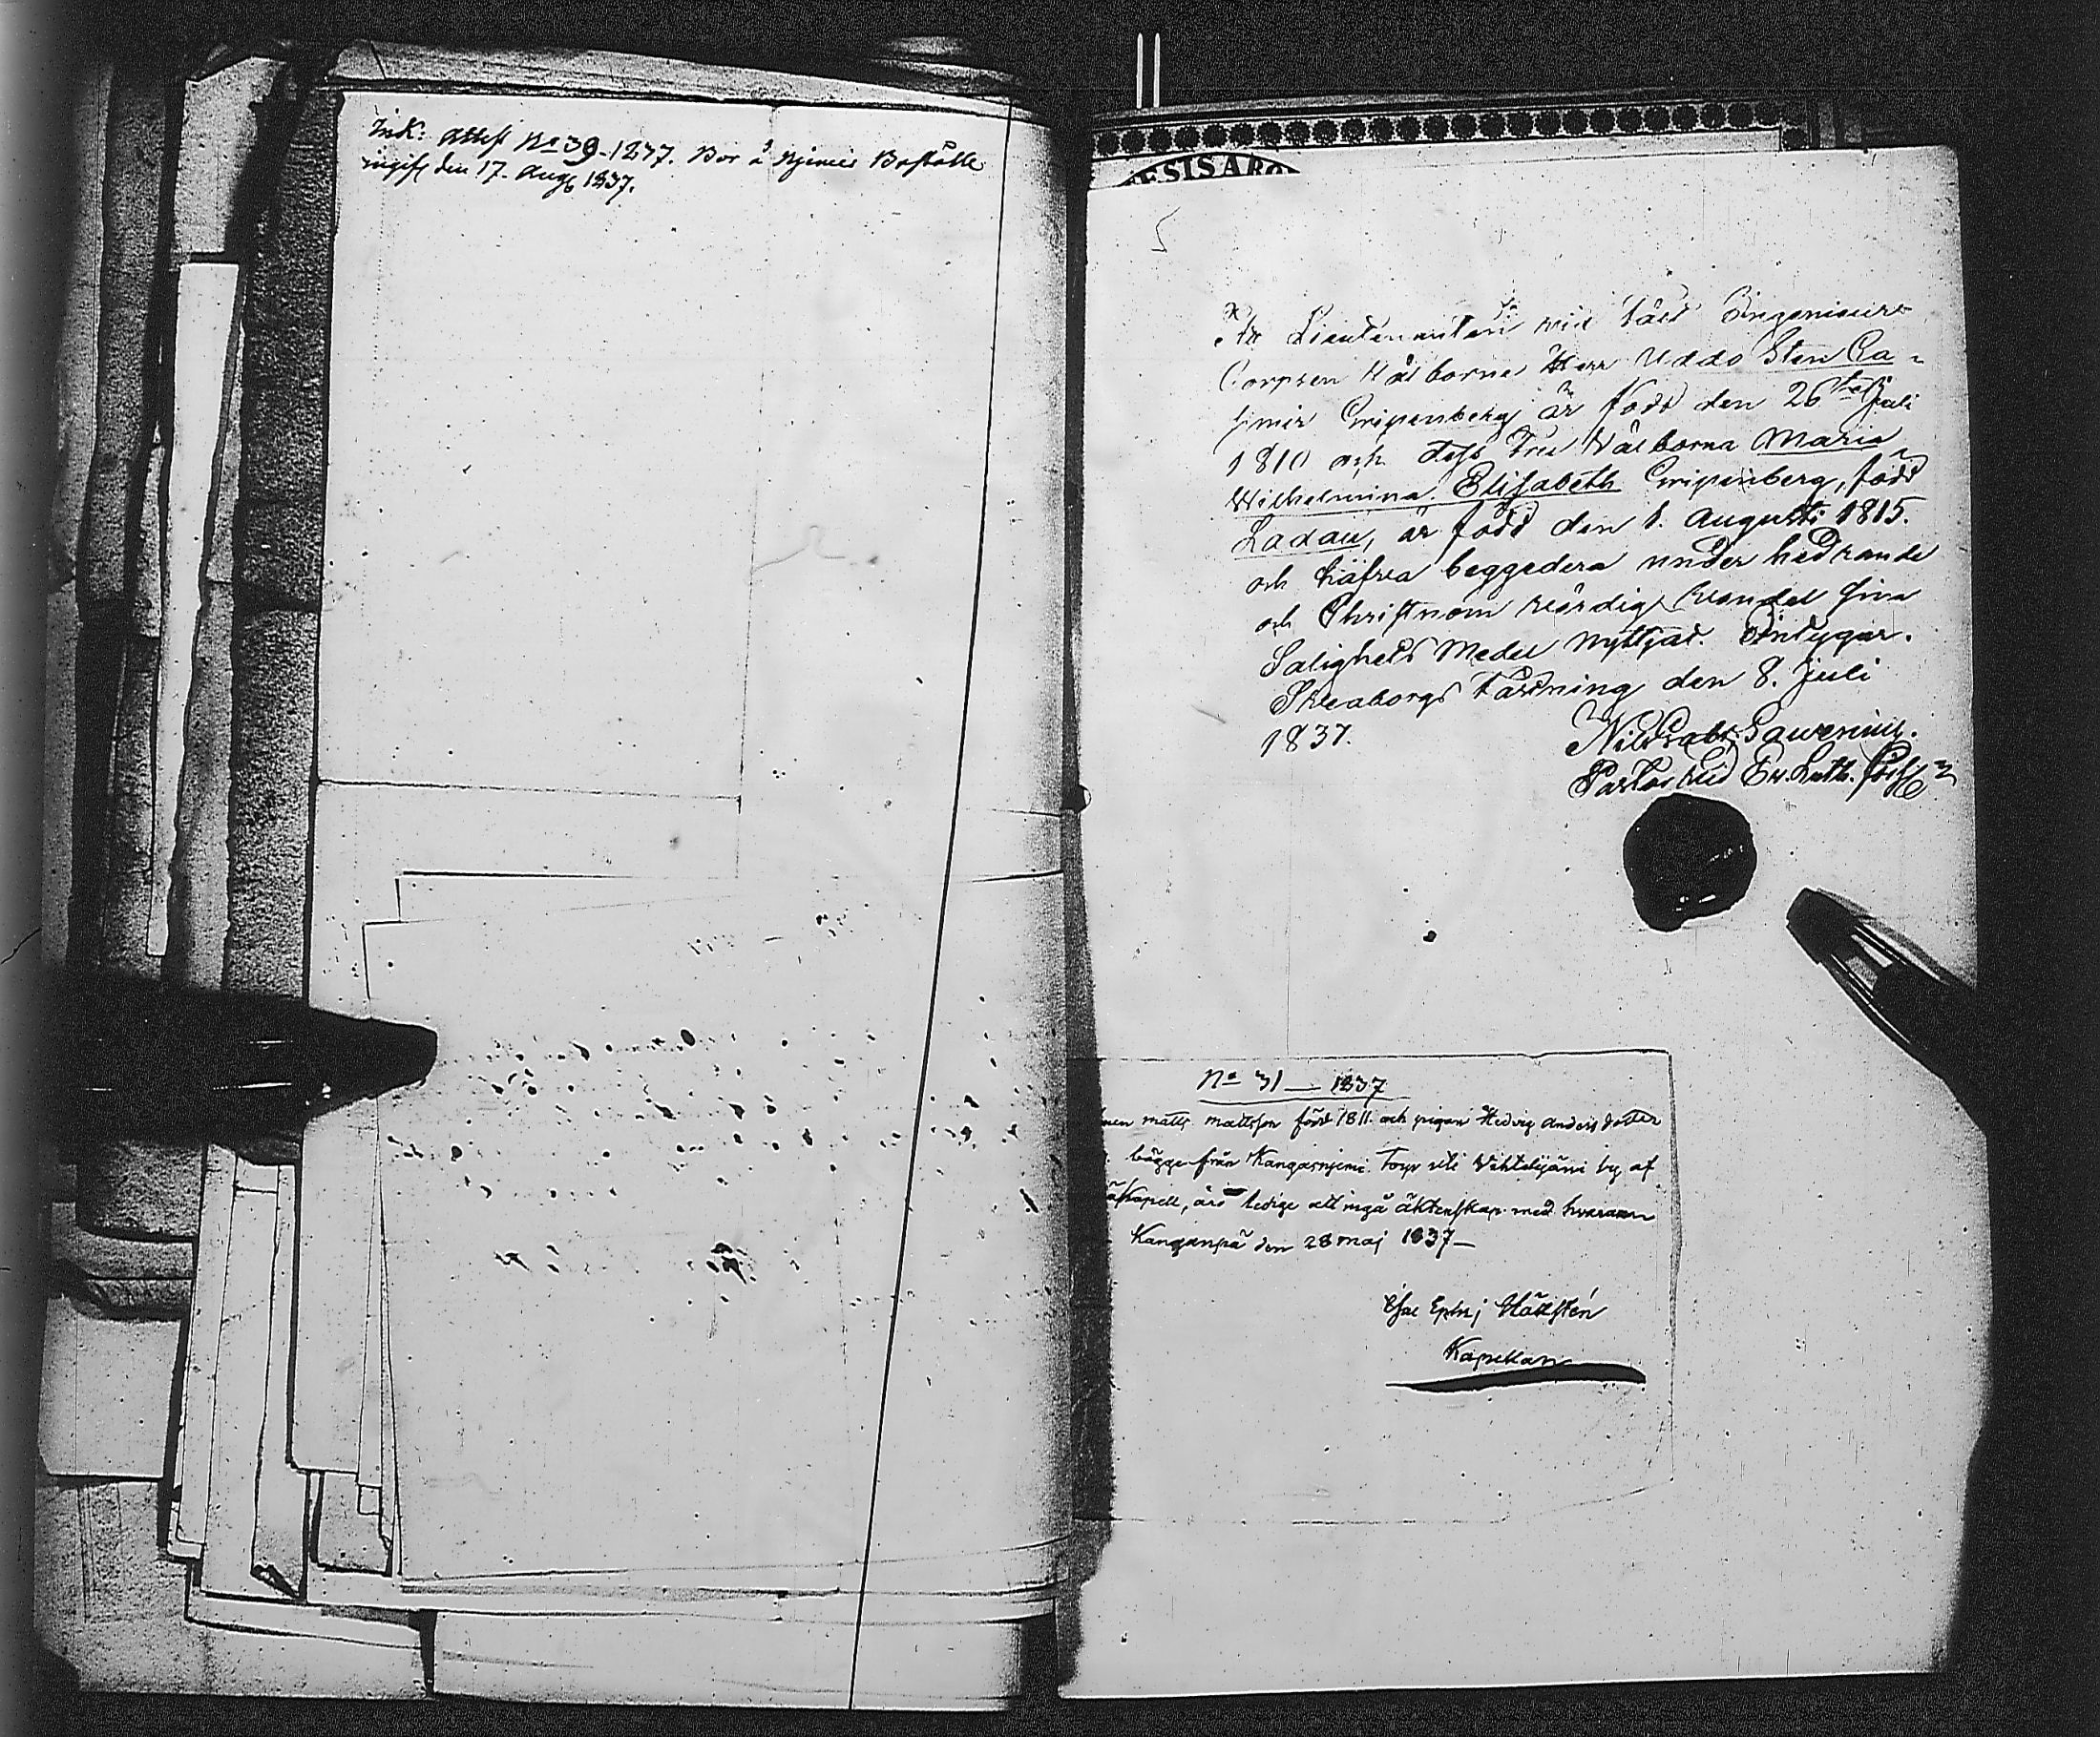 Ink: Attest No 39-1837. Bor å Njemis Boställe
ingift den 17. Aug 1837.
ESISARO
Att Lieutenanten vid Väst Ingenieurs
Corpsen Välborne Herr Uddo Sten Ca-
simir Gripenberg är född den 26te Juli
1810 och dess Fru Välborna Maria
Wilhelmina Elisabeth Gripenberg, född
Ladau, är född den 1. Augusti 1815.
och hafva beggedera under hedrande
och Christnom värdig vandel sina
Salighets Medel nyttjat. Intygar.
Sveaborgs Fästning den 8. Juli
1837.
Pastor vid Ev. Luth. Förs
No 31 — 1837
Matts Mattsson född 1811. och pigan Hedvig Andersdotter
bägge från Kangasnjemi Torp uti by af
Kapell, äro ledige att ingå äktenskap med hvarann
Kanganpä den 28 Maj 1837—
Hällstén
Kapellan